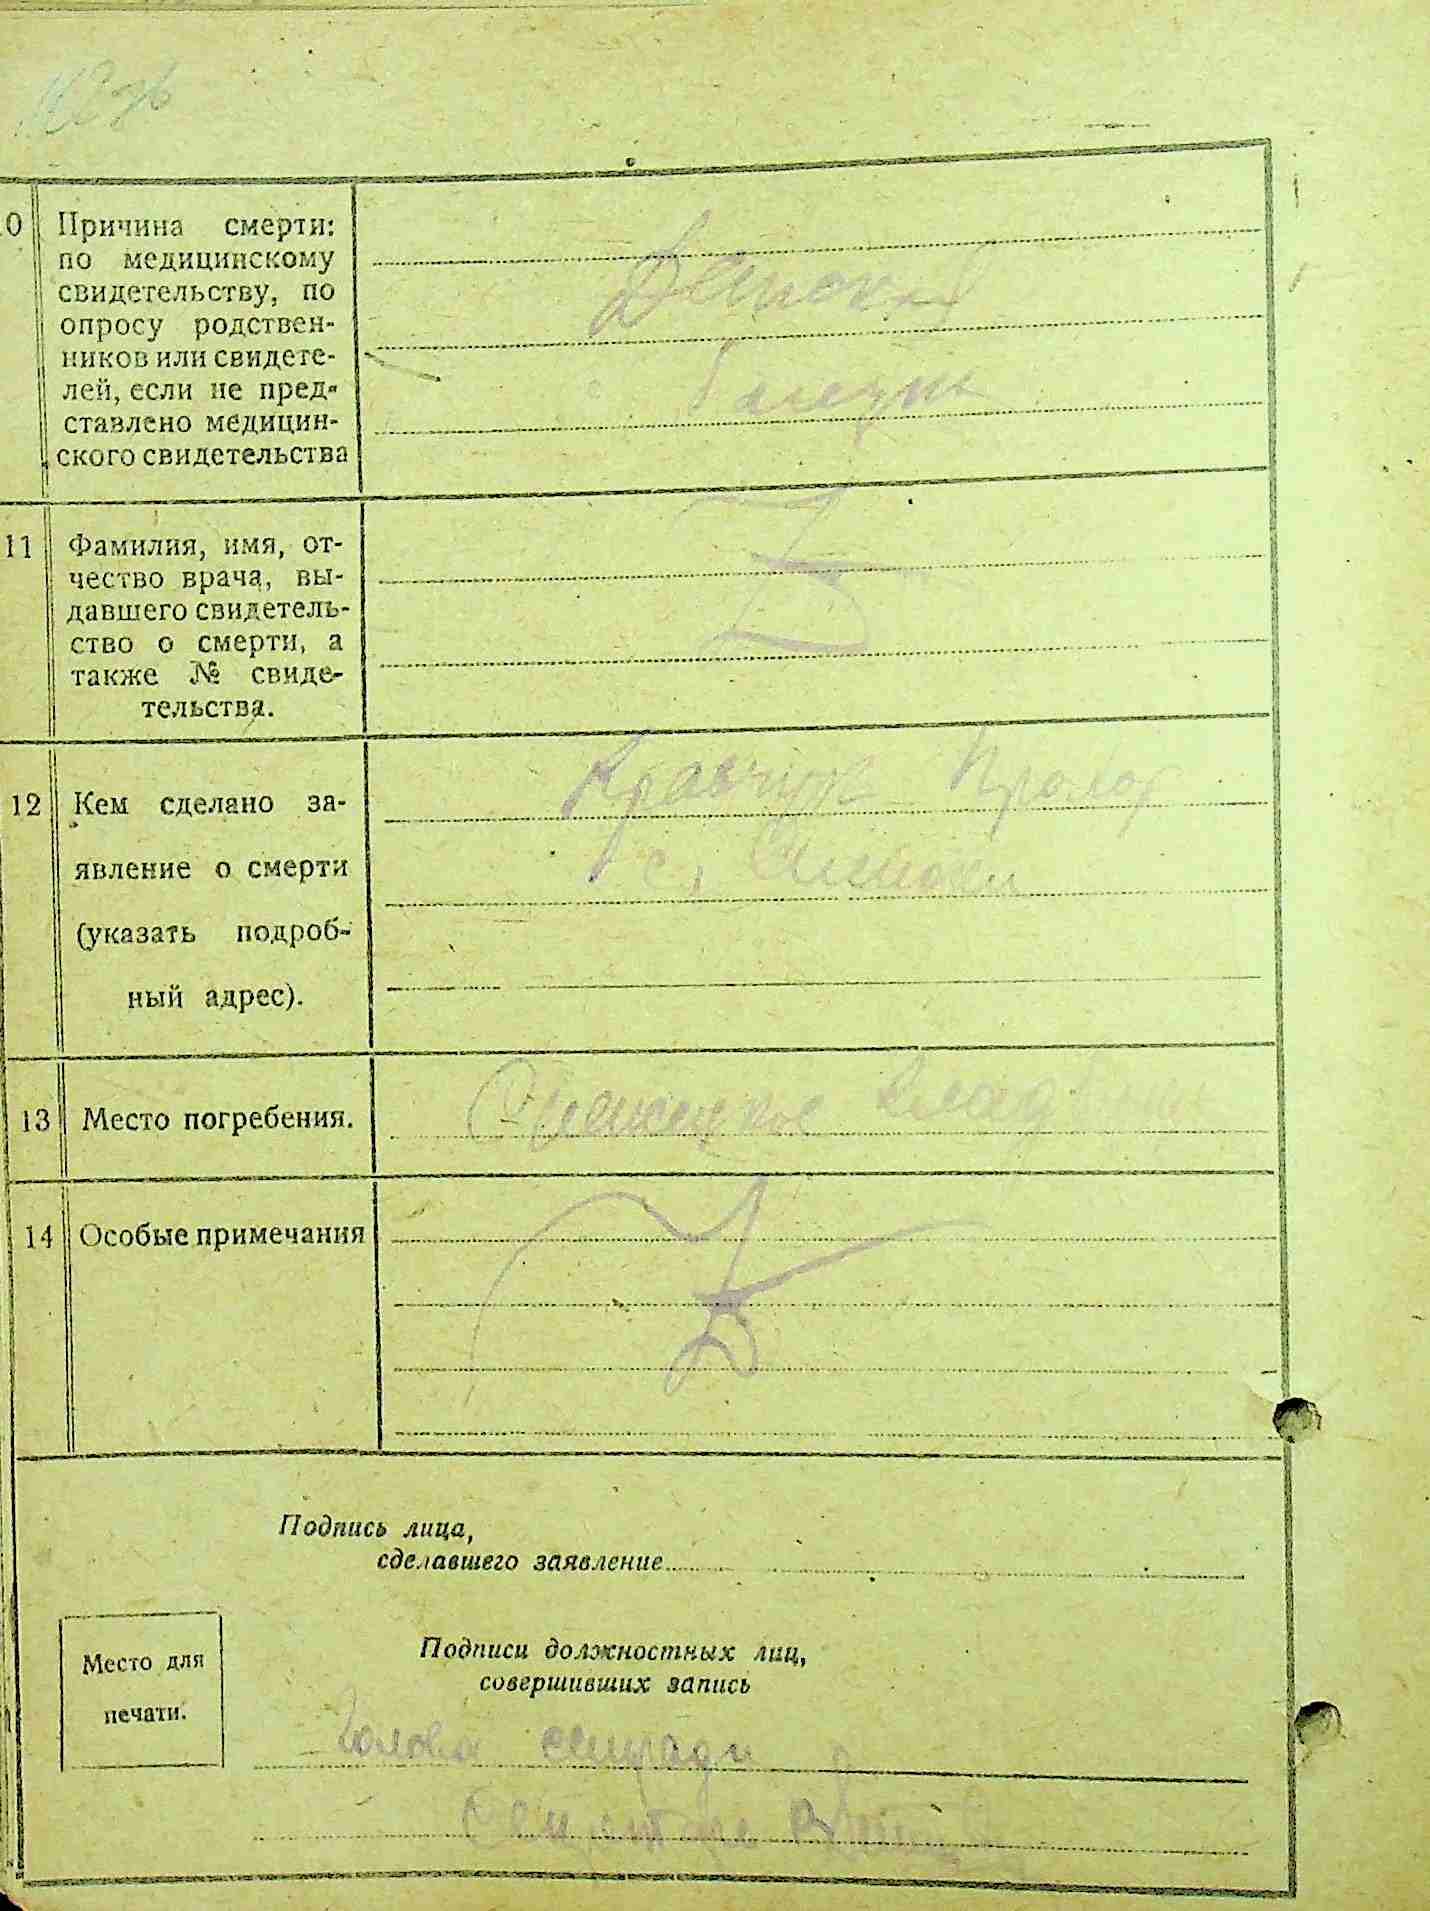 10 Причина смерти:
по медицинскому
свидетельству, по
опросу родствен-
ников или свидете-
лей, если не пред-
ставлено медицин-
ского свидетельства
Детская
болезнь
11 Фамилия, имя, от-
чество врача, вы-
давшего свидетель-
ство о смерти, а
также № свиде-
тельства.
12 Кем сделано за-
явление о смерти
(указать подроб-
ный адрес).
Кравчук
с.
13 Место погребения.
кладбище
14 Особые примечания
Подпись лица,
сделавшего заявление
Место для
печати.
Подписи должностных лиц,
совершивших запись
Голова сільради